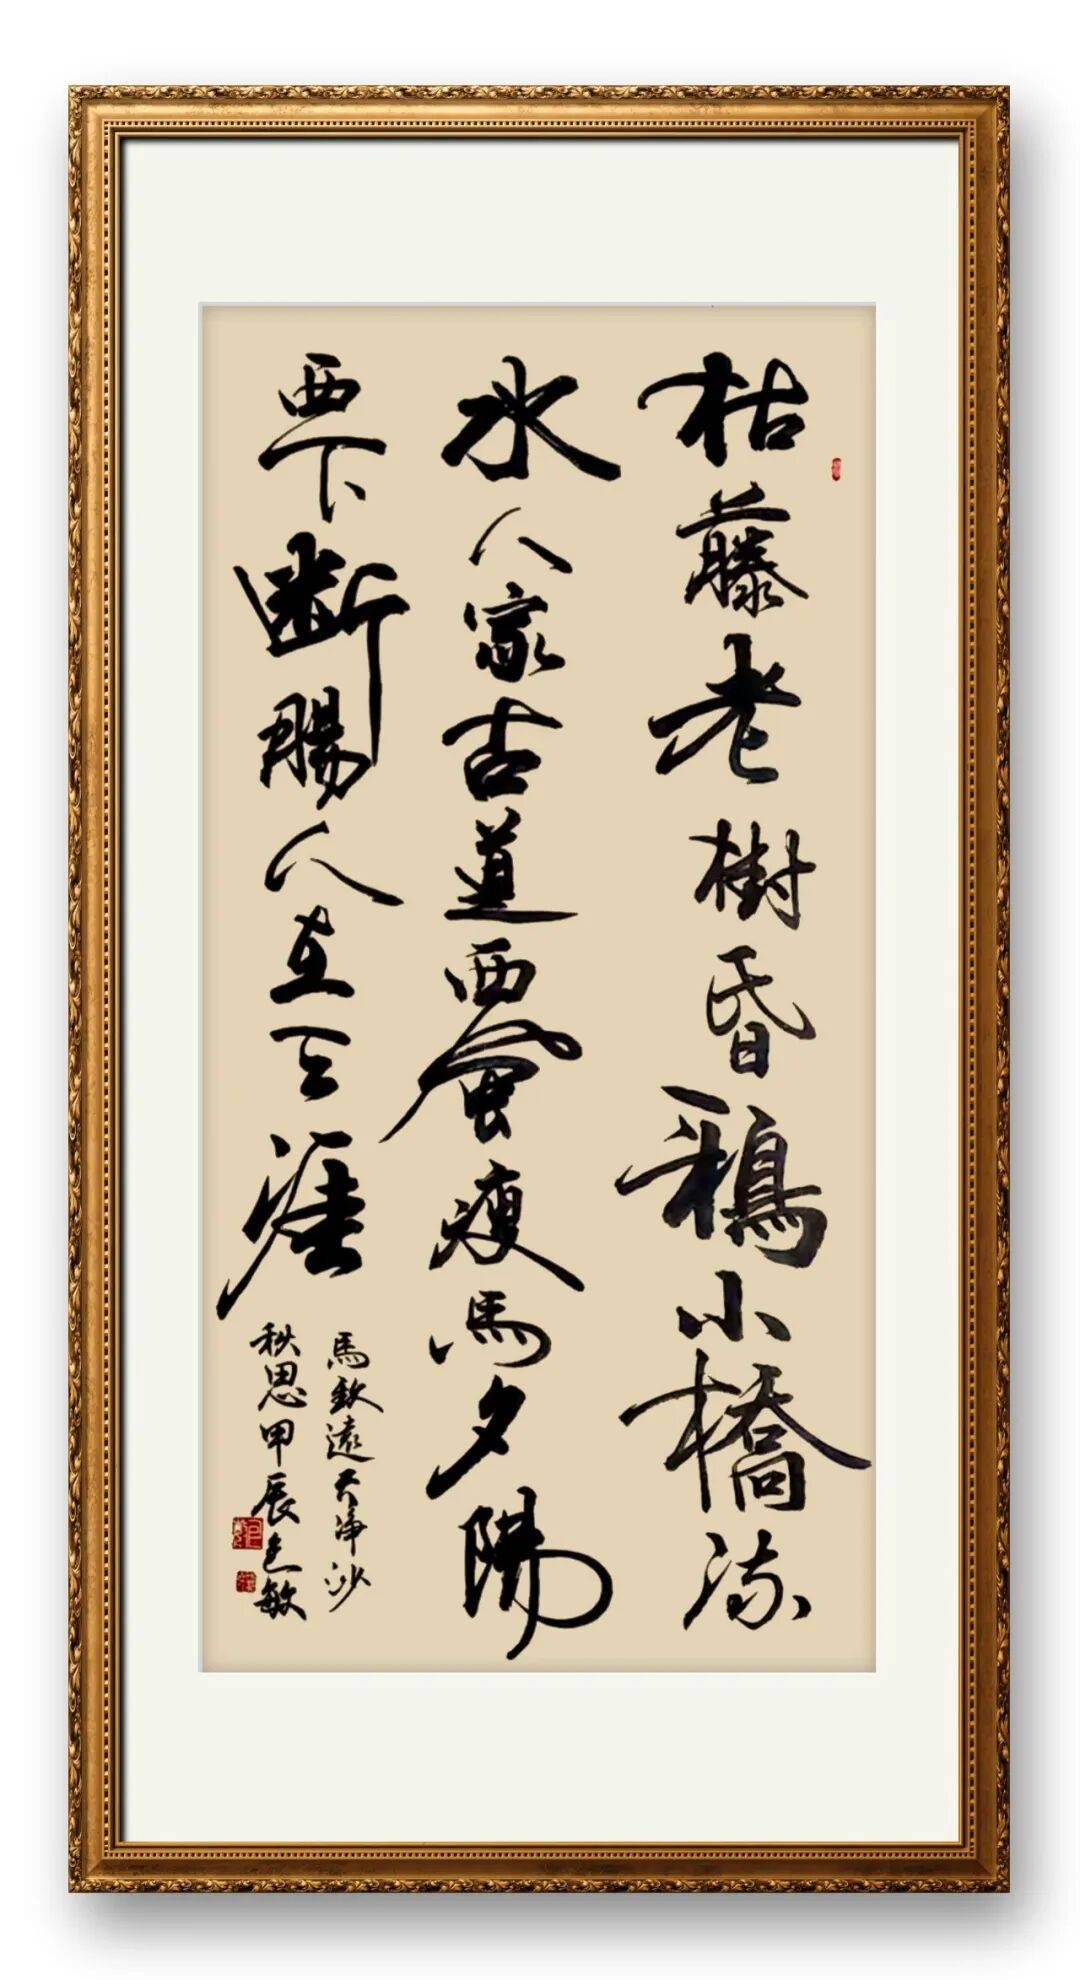 枯藤老樹昏鴉小橋流
水人家古道西風瘦馬夕陽
西下斷腸人在天涯
馬致遠天淨沙
秋思甲辰敏